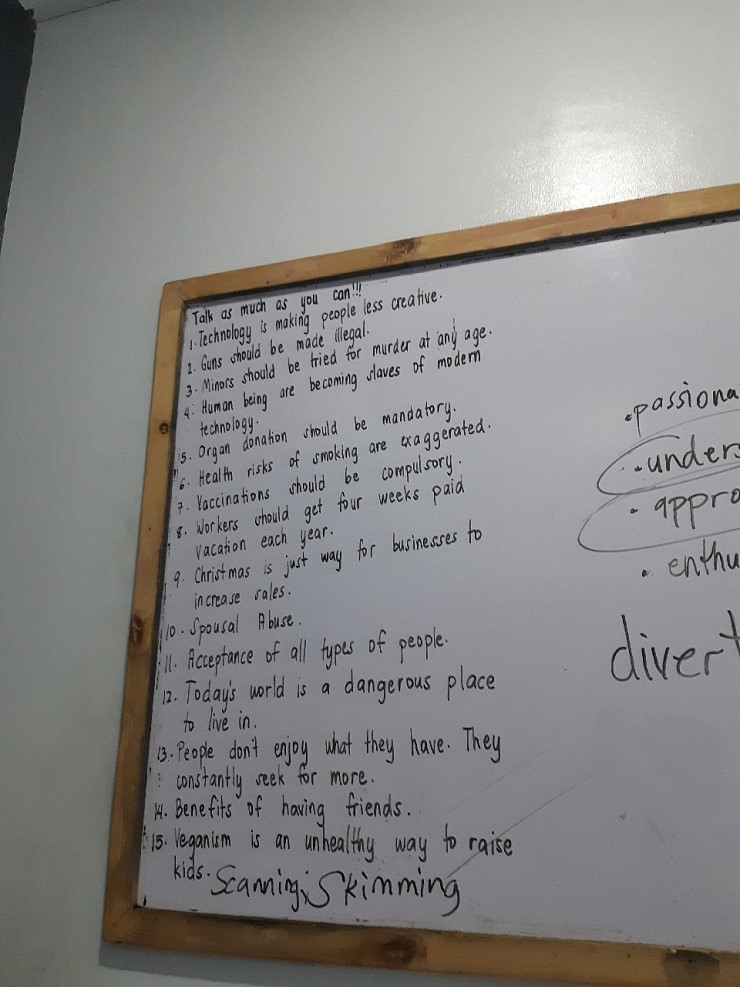 Talk as much as you can!!!
1. Technology is making people less creative.
2. Guns should be made illegal.
3. Minors should be tried for murder at any age.
4. Human being are becoming slaves of modern
technology.
5. Organ donation should be mandatory.
6. Health risks of smoking are exaggerated.
7. Vaccinations should be compulsory.
8. Workers should get four weeks paid
vacation each year.
9. Christmas is just way for businesses to
increase sales.
10. Spousal Abuse.
11. Acceptance of all types of people.
12. Today's world is a dangerous place
to live in.
13. People don't enjoy what they have. They
constantly seek for more.
14. Benefits of having friends.
15. Veganism is an unhealthy way to raise
kids.
Scanning, Skimming
• passiona
• unders
• appro
• enthu
divert